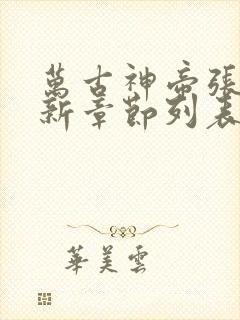 萬古神帝張
新章節列表
華美雲